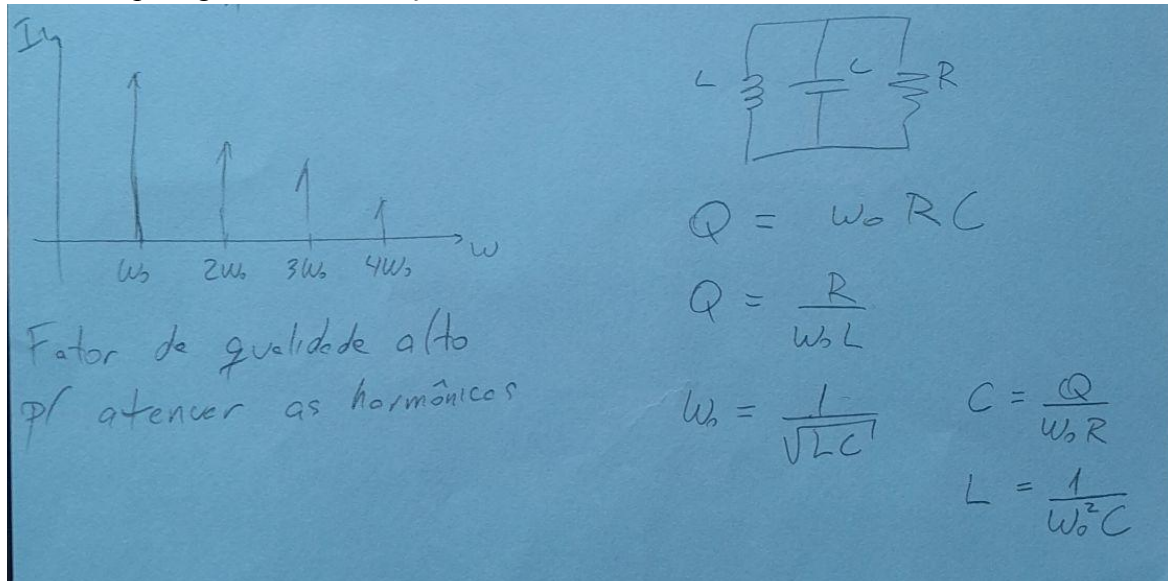 In
ω₀ 2ω₀ 3ω₀ 4ω₀ ω
Fator de qualidade alto
p/ atenuar as harmônicas
L C R
Q = ω₀ R C
Q = R / ω₀ L
ω₀ = 1 / √LC
C = Q / ω₀ R
L = 1 / ω₀² C